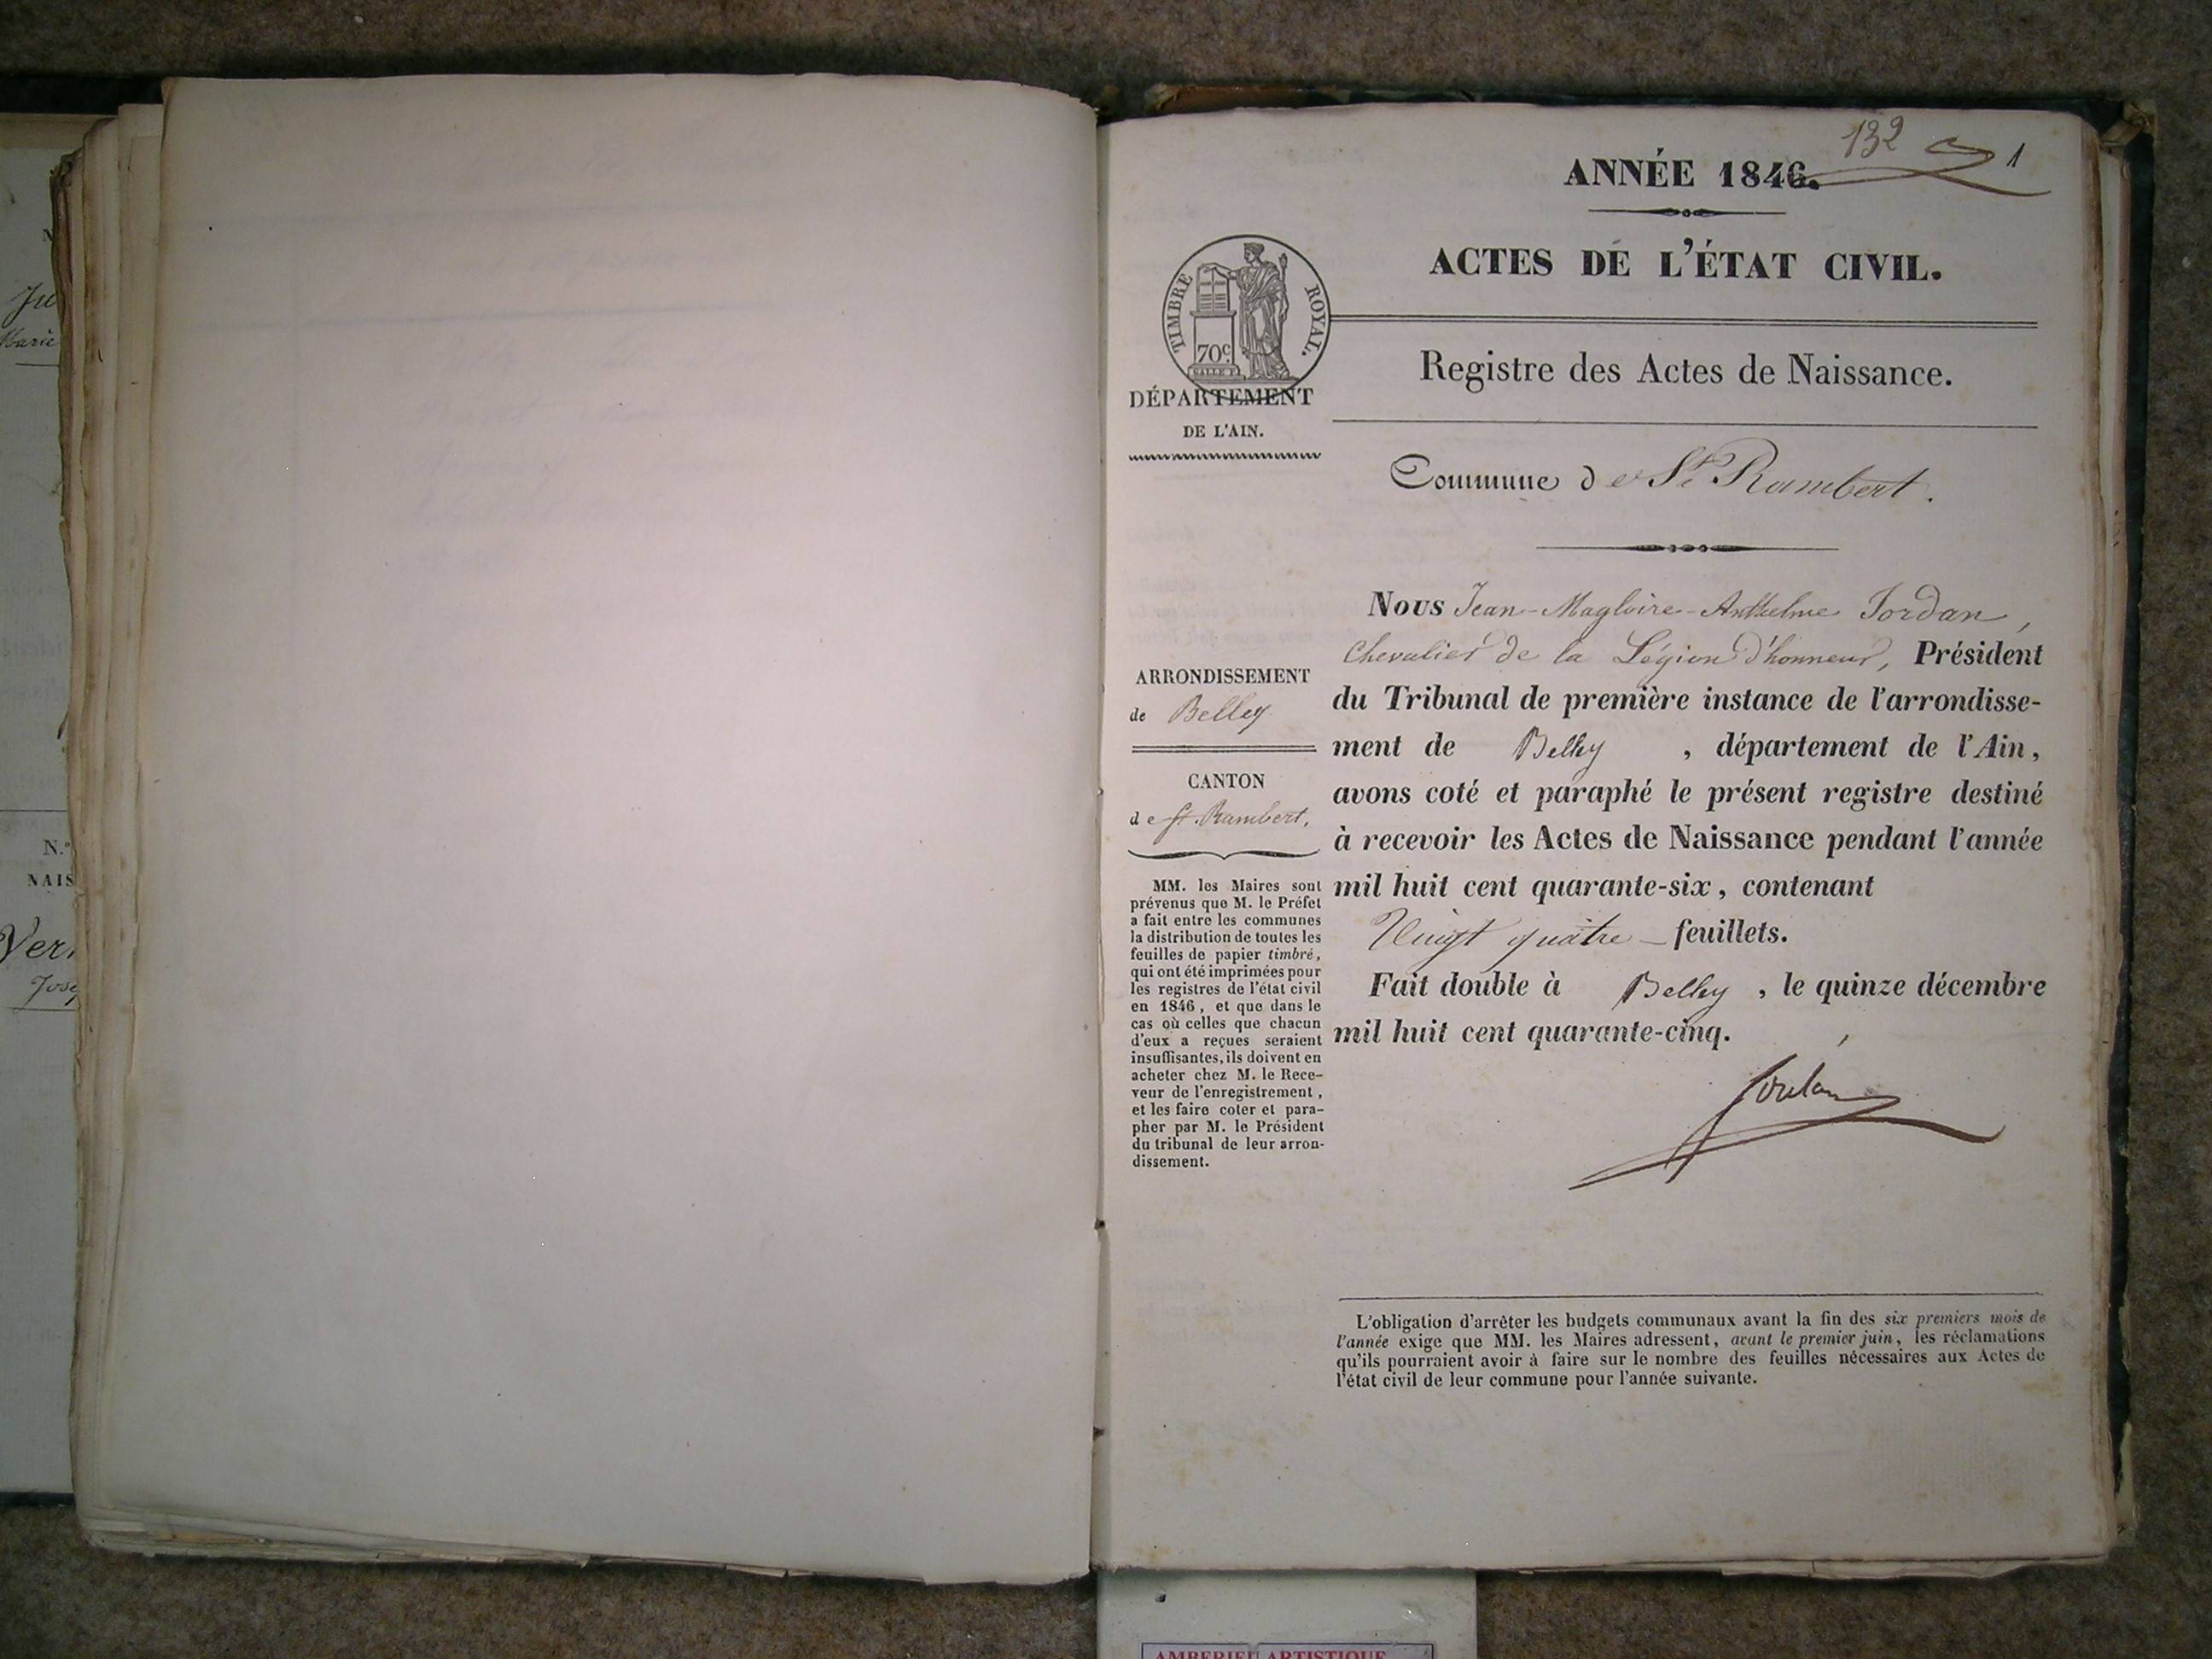 Ju
Marie
N.º
NAIS
Ver
Jose
132
1
ANNÉE 1846.
ACTES DE L'ÉTAT CIVIL.
TIMBRE ROYAL.
70c
DÉPARTEMENT
DE L'AIN.
Registre des Actes de Naissance.
Commune de St Rambert.
ARRONDISSEMENT
de Belley
CANTON
de St. Rambert.
MM. les Maires sont
prévenus que M. le Préfet
a fait entre les communes
la distribution de toutes les
feuilles de papier timbré,
qui ont été imprimées pour
les registres de l'état civil
en 1846, et que dans le
cas où celles que chacun
d'eux a reçues seraient
insuffisantes, ils doivent en
acheter chez M. le Rece-
veur de l'enregistrement,
et les faire coter et para-
pher par M. le Président
du tribunal de leur arron-
dissement.
Nous Jean-Magloire-Anthelme Jordan,
Chevalier de la Légion d'honneur, Président
du Tribunal de première instance de l'arrondisse-
ment de Belley, département de l'Ain,
avons coté et paraphé le présent registre destiné
à recevoir les Actes de Naissance pendant l'année
mil huit cent quarante-six, contenant
Vingt quatre feuillets.
Fait double à Belley, le quinze décembre
mil huit cent quarante-cinq.
Jordan
L'obligation d'arrêter les budgets communaux avant la fin des six premiers mois de
l'année exige que MM. les Maires adressent, avant le premier juin, les réclamations
qu'ils pourraient avoir à faire sur le nombre des feuilles nécessaires aux Actes de
l'état civil de leur commune pour l'année suivante.
AMBERIEU ARTISTIQUE